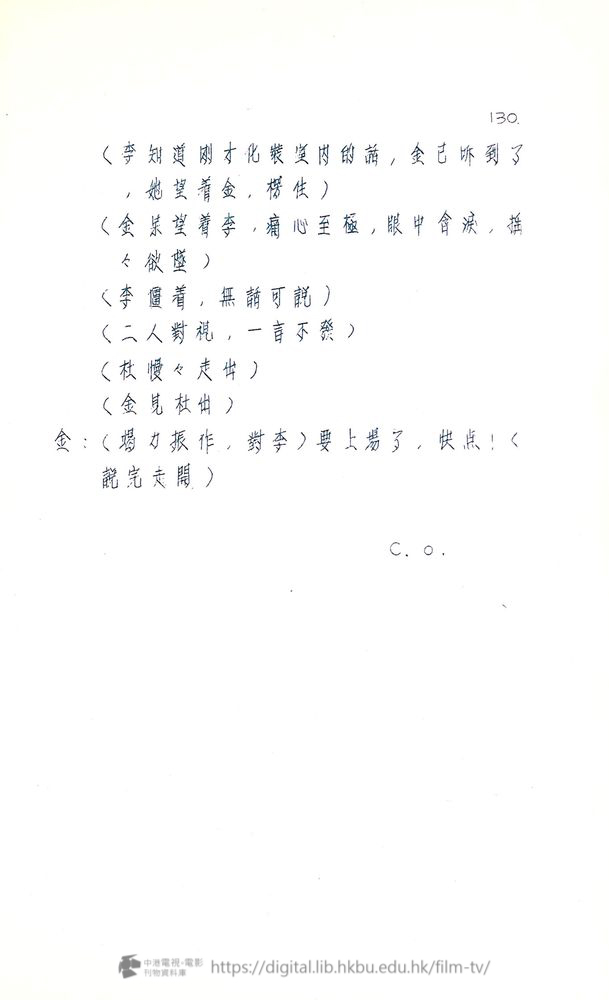 130.
（李知道刚才化裝室内的話，金已听到了
，她望着金，楞住）
（金呆望着李，痛心至極，眼中含淚，摇
々欲墜）
（李僵着，無話可說）
（二人對視，一言不發）
（杜慢々走出）
（金見杜出）
金：（竭力振作，對李）要上場了，快点！（
說完走開）
C. O.
中港電視•電影
刊物資料庫
https://digital.lib.hkbu.edu.hk/film-tv/